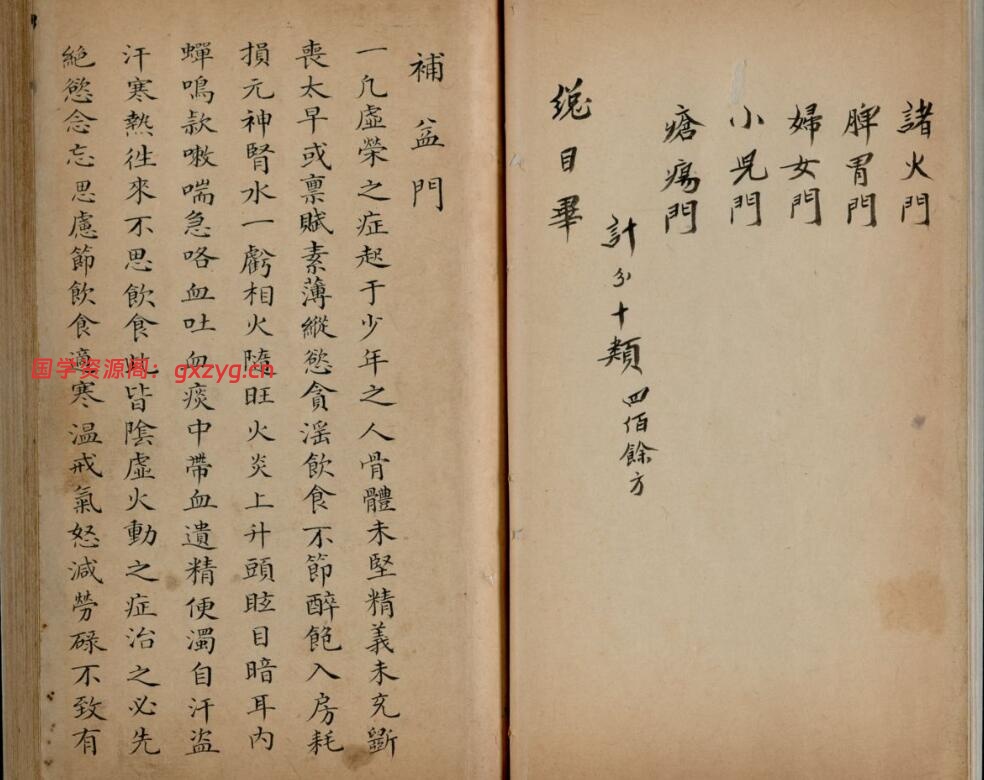 諸火門
脾胃門
婦女門
小兒門
瘡瘍門
計分十類 四佰餘方
總目畢
補益門
一凡虛榮之症起于少年之人骨體未堅精義未充斵
喪太早或禀賦素薄縱慾貪滛飲食不節醉飽入房耗
損元神腎水一虧相火隨旺火炎上升頭眩目暗耳內
蟬鳴欬嗽喘急咯血吐血痰中帶血遺精便濁自汗盗
汗寒熱徃來不思飲食此皆陰虛火動之症治之必先
絶慾念忘思慮節飲食適寒温戒氣怒減勞碌不致有
国学资源阁：gxzyg.cn